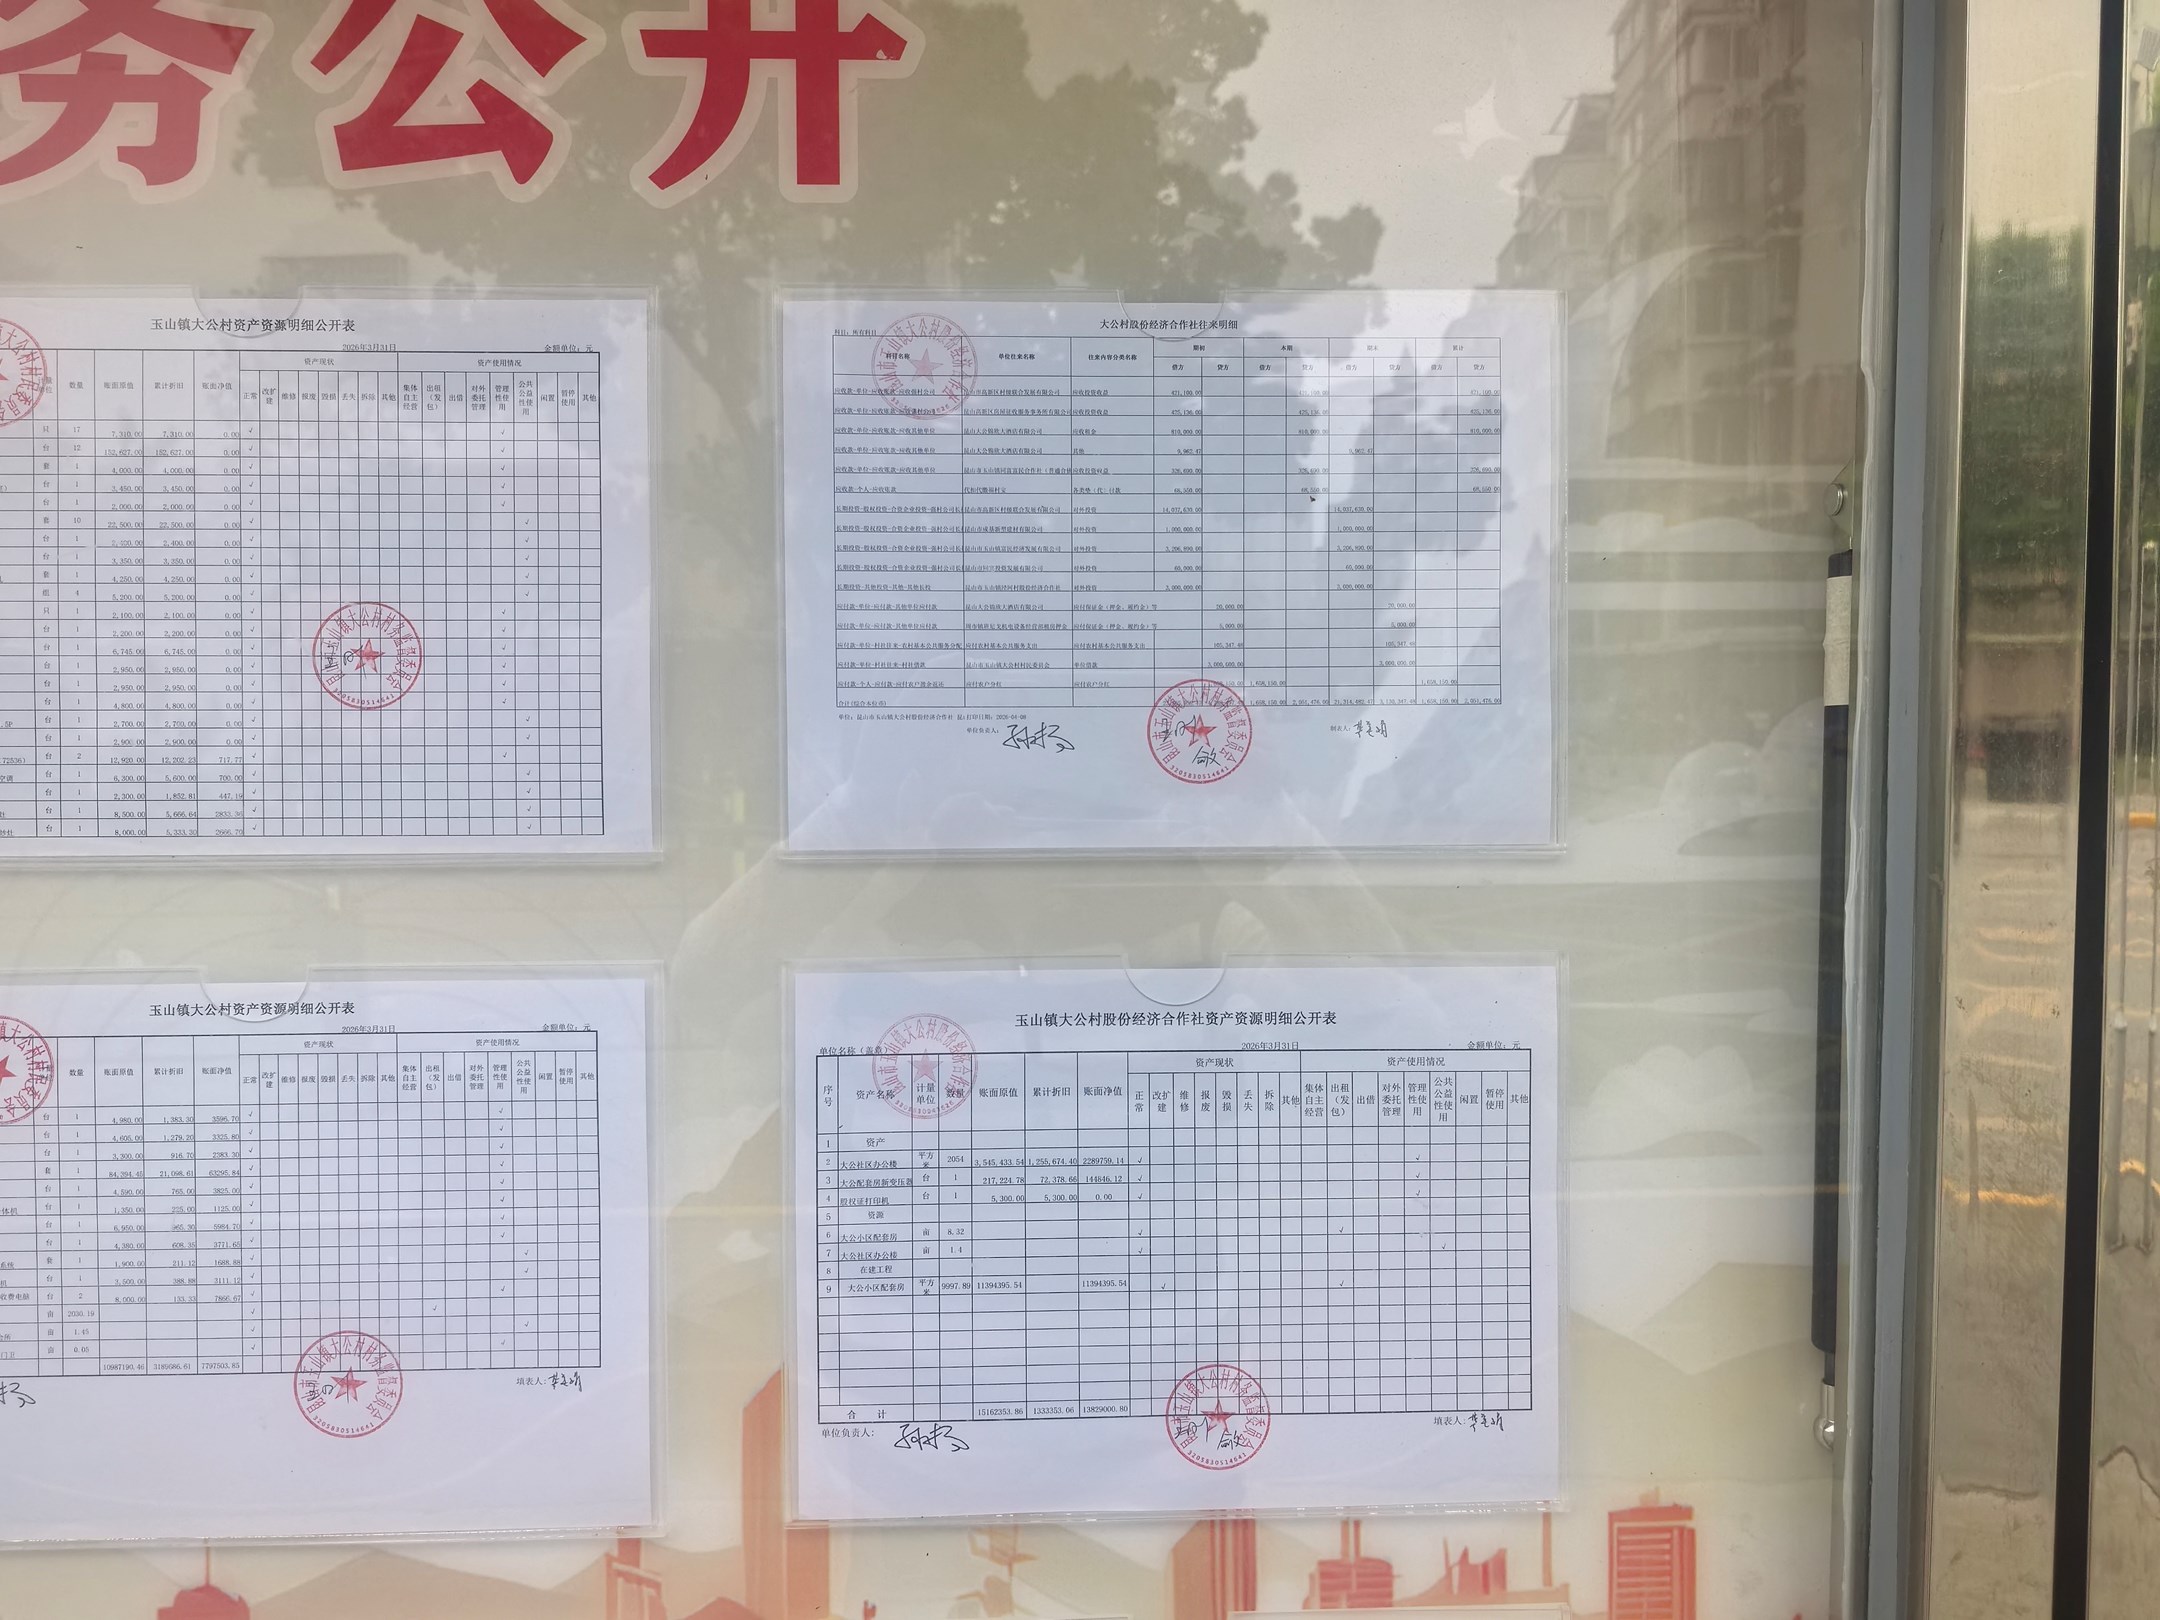 务公开
玉山镇大公村资产资源明细公开表
2026年3月31日 金额单位：元
数量 账面原值 累计折旧 账面净值 资产现状 资产使用情况
正常 改扩建 维修 报废 毁损 丢失 拆除 其他 集体自主经营 出租（发包） 出借 对外委托管理 管理性使用 公共公益性使用 闲置 暂停使用 其他
17 7,310.00 7,310.00 0.00 √ √
台 12 152,627.00 152,627.00 0.00 √ √
套 1 4,000.00 4,000.00 0.00 √ √
台 1 3,450.00 3,450.00 0.00 √ √
台 1 2,000.00 2,000.00 0.00 √ √
套 10 22,500.00 22,500.00 0.00 √ √
台 1 2,400.00 2,400.00 0.00 √ √
台 1 3,350.00 3,350.00 0.00 √ √
套 1 4,250.00 4,250.00 0.00 √ √
组 4 5,200.00 5,200.00 0.00 √ √
只 1 2,100.00 2,100.00 0.00 √ √
台 1 2,200.00 2,200.00 0.00 √ √
台 1 6,745.00 6,745.00 0.00 √ √
台 1 2,950.00 2,950.00 0.00 √ √
台 1 2,950.00 2,950.00 0.00 √ √
台 1 4,800.00 4,800.00 0.00 √ √
.5P 台 1 2,700.00 2,700.00 0.00 √ √
台 1 2,900.00 2,900.00 0.00 √ √
72536） 台 2 12,920.00 12,202.23 717.77 √ √
空调 台 1 6,300.00 5,600.00 700.00 √ √
台 1 2,300.00 1,852.81 447.19 √ √
灶 台 1 8,500.00 5,666.64 2833.36 √ √
炒灶 台 1 8,000.00 5,333.30 2666.70 √ √
大公村股份经济合作社往来明细
科目：所有科目
科目名称 单位往来名称 往来内容分类名称 期初 本期 期末 累计
借方 贷方 借方 贷方 借方 贷方 借方 贷方
应收款-单位-应收账款-应收强村公司 昆山市高新区村级联合发展有限公司 应收投资收益 471,100.00
应收投资收益 425,136.00
应收款-单位-应收账款-应收其他单位 昆山大公锦欣大酒店有限公司 应收租金 810,000.00 810,000.00 810,000.00
应收款-单位-应收账款-应收其他单位 昆山大公锦欣大酒店有限公司 其他 9,962.47 9,962.47
应收款-单位-应收账款-应收其他单位 应收投资收益 326,690.00 326,690.00 326,690.00
应收款-个人-应收账款 各类垫（代）付款 68,550.00 68,550.00 68,550.00
昆山市高新区村级联合发展有限公司 对外投资 14,037,630.00 14,037,630.00
对外投资 1,000,000.00 1,000,000.00
昆山市玉山镇富民经济发展有限公司 对外投资 3,206,890.00 3,206,890.00
对外投资 60,000.00 60,000.00
长期投资-其他投资-其他-其他长投 对外投资 3,000,000.00 3,000,000.00
应付款-单位-应付款-其他单位应付款 昆山大公锦欣大酒店有限公司 应付保证金（押金、履约金）等 20,000.00 20,000.00
应付款-单位-应付款-其他单位应付款 应付保证金（押金、履约金）等 5,000.00 5,000.00
应付农村基本公共服务支出 应付农村基本公共服务支出 105,347.48 105,347.48
应付款-单位-村社往来-村社借款 昆山市玉山镇大公村村民委员会 单位借款 3,000,000.00 3,000,000.00
应付农户分红 应付农户分红 1,658,150.00 1,658,150.00
合计(综合本位币) 1,658,150.00 2,051,476.00 21,314,482.47 3,130,347.48 1,658,150.00 2,051,476.00
打印日期：2026-04-08
单位负责人： 制表人：
玉山镇大公村资产资源明细公开表
2026年3月31日 金额单位：元
数量 账面原值 累计折旧 账面净值 资产现状 资产使用情况
正常 改扩建 维修 报废 毁损 丢失 拆除 其他 集体自主经营 出租（发包） 出借 对外委托管理 管理性使用 公共公益性使用 闲置 暂停使用 其他
台 1 4,980.00 1,383.30 3596.70 √ √
台 1 4,605.00 1,279.20 3325.80 √ √
台 1 3,300.00 916.70 2383.30 √ √
套 1 84,394.45 21,098.61 63295.84 √ √
台 1 4,590.00 765.00 3825.00 √ √
体机 台 1 1,350.00 225.00 1125.00 √ √
台 1 6,950.00 965.30 5984.70 √ √
台 1 4,380.00 608.35 3771.65 √ √
系统 套 1 1,900.00 211.12 1688.88 √ √
机 台 1 3,500.00 388.88 3111.12 √ √
收费电脑 台 2 8,000.00 133.33 7866.67 √ √
亩 2030.19 √ √
亩 1.45 √ √
门卫 亩 0.05 √ √
10987190.46 3189686.61 7797503.85
填表人：
玉山镇大公村股份经济合作社资产资源明细公开表
单位名称（盖章） 2026年3月31日 金额单位：元
序号 资产名称 计量单位 数量 账面原值 累计折旧 账面净值 资产现状 资产使用情况
正常 改扩建 维修 报废 毁损 丢失 拆除 其他 集体自主经营 出租（发包） 出借 对外委托管理 管理性使用 公共公益性使用 闲置 暂停使用 其他
1 资产
2 大公社区办公楼 平方米 2054 3,545,433.54 1,255,674.40 2289759.14 √ √
3 大公配套房新变压器 台 1 217,224.78 72,378.66 144846.12 √ √
4 股权证打印机 台 1 5,300.00 5,300.00 0.00 √ √
5 资源
6 大公小区配套房 亩 8.32 √ √
7 大公社区办公楼 亩 1.4 √ √
8 在建工程
9 大公小区配套房 平方米 9997.89 11394395.54 11394395.54 √ √
合 计 15162353.86 1333353.06 13829000.80
单位负责人： 填表人：